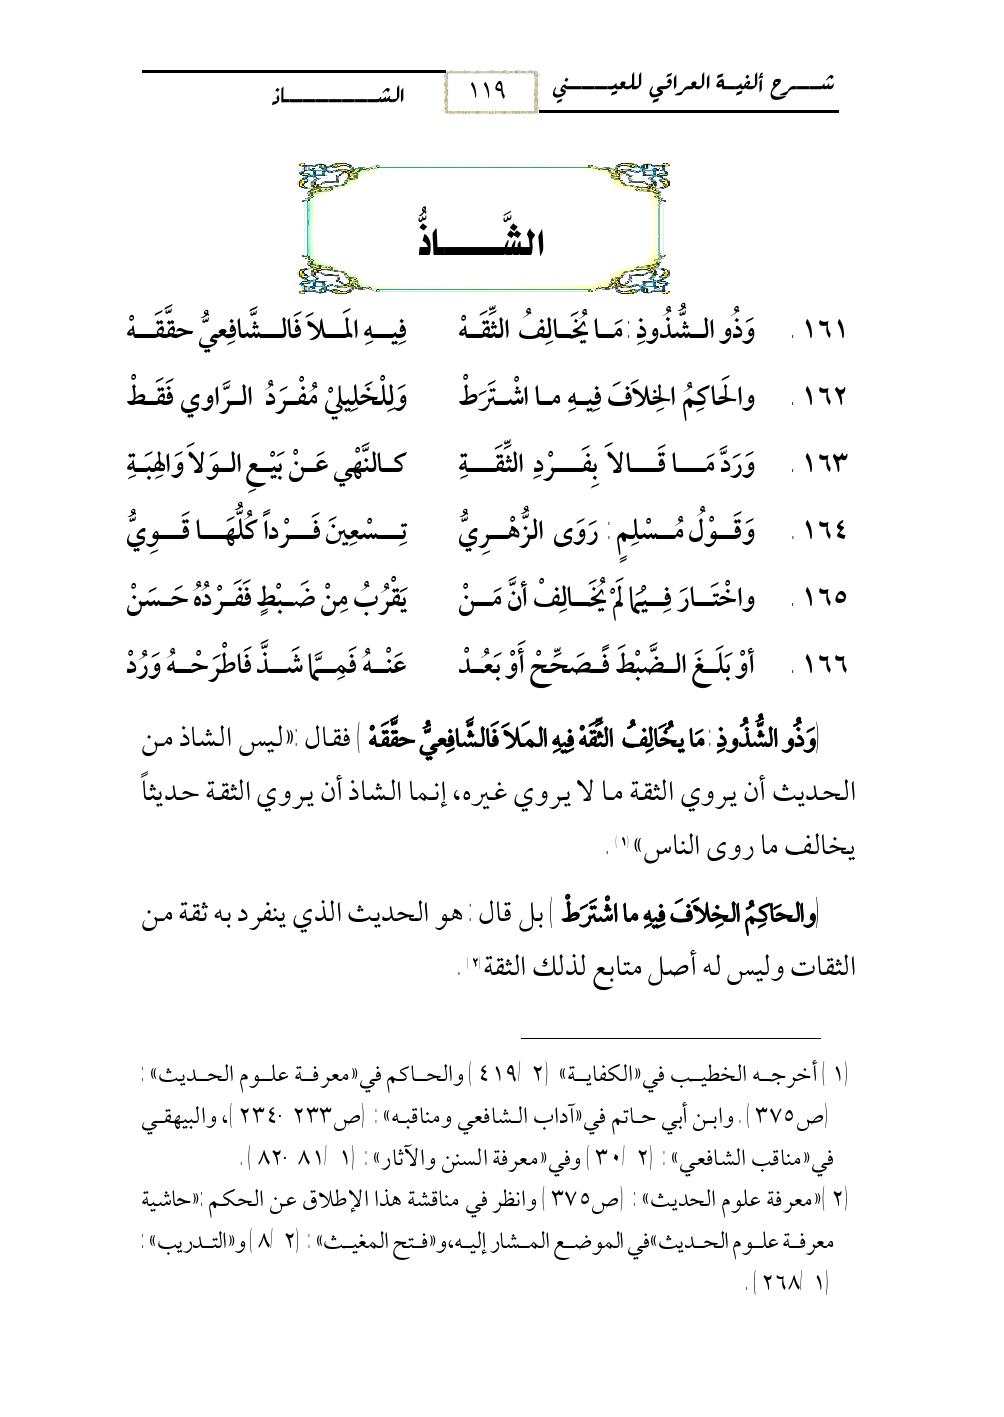 شـــرح ألفيــة العراقي للعينـــي ١١٩ الشـــــــــاذ
الشَّـــــاذُّ
١٦١ . وَذُو الـشُّذُوذِ : مَـا يُخَـالِفُ الثِّقَـهْ فِيـهِ المَـلاَ فَالـشَّافِعيُّ حقَّقَـهْ
١٦٢ . والحَاكِمُ الخِلاَفَ فِيـهِ مـا اشْـتَرَطْ وَلِلْخَلِيلِيْ مُفْـرَدُ الـرَّاوي فَقَـطْ
١٦٣ . وَرَدَّ مَـا قَـالاَ بِفَـرْدِ الثِّقَـةِ كـالنَّهْي عَـنْ بَيْـعِ الـوَلاَ وَالهِبَـةِ
١٦٤ . وَقَـوْلُ مُـسْلِمٍ : رَوَى الزُّهْـرِيُّ تِـسْعِينَ فَـرْداً كُلُّهَـا قَـوِيُّ
١٦٥ . واخْتَـارَ فِـيْمَا لَمْ يُخَـالِفْ أنَّ مَـنْ يَقْرُبُ مِنْ ضَـبْطٍ فَفَـرْدُهُ حَـسَنْ
١٦٦ . أوْ بَلَـغَ الـضَّبْطَ فَـصَحِّحْ أَوْ بَعُـدْ عَنْـهُ فَمِـمَّا شَـذَّ فَاطْرَحْـهُ وَرُدْ
(وَذُو الشُّذُوذِ : مَا يخَالِفُ الثِّقَهْ فِيهِ المَلاَ فَالشَّافِعيُّ حقَّقَهْ ) فقـال : «ليـس الشاذ مـن
الحديث أن يـروي الثقة مـا لا يـروي غيره، إنـما الشاذ أن يـروي الثقـة حديثاً
يخالف ما روى الناس» (١) .
(والحَاكِمُ الخِلاَفَ فِيهِ ما اشْتَرَطْ ) بل قال : هو الحديث الذي ينفرد به ثقة من
الثقات وليس له أصل متابع لذلك الثقة (٢) .
(١ ) أخرجـه الخطيـب في «الكفايـة» (٢ /٤١٩ ) والحـاكم في «معرفـة علـوم الحـديث» :
(ص٣٧٥ ) . وابـن أبي حـاتم في «آداب الـشافعي ومناقبـه» : (ص٢٣٣ -٢٣٤ )، والبيهقـي
في «مناقب الشافعي» : (٢ /٣٠ ) وفي «معرفة السنن والآثار» : (١ /٨١ -٨٢ ).
(٢ ) «معرفة علوم الحديث» : (ص٣٧٥ ) وانظر في مناقشة هذا الإطلاق عن الحكم : «حاشية
معرفـة علـوم الحـديث» في الموضـع المـشار إليـه، و«فـتح المغيـث» : (٢ /٨ ) و«التـدريب» :
(١ /٢٦٨ ) .